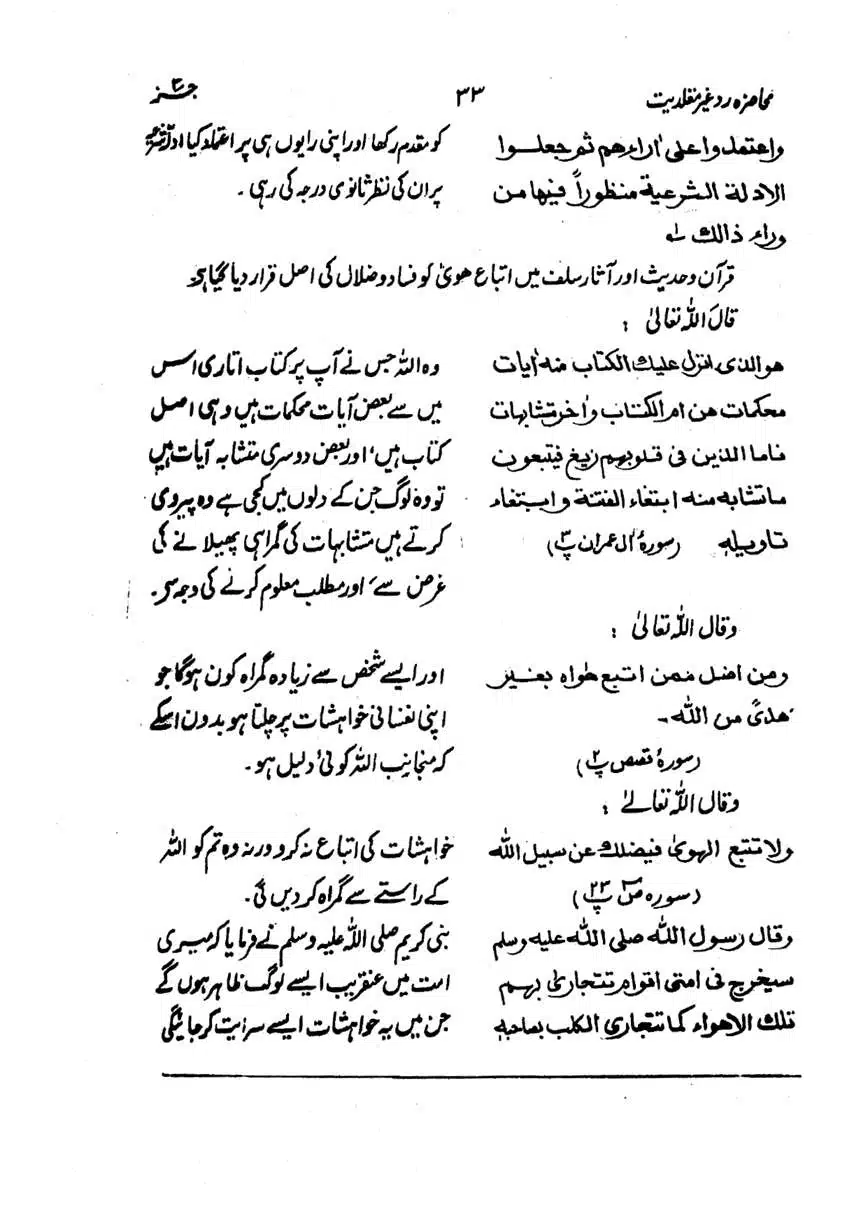 محاضرہ رد غیر مقلدیت ۳۳ جـــز ۳
واعتمدوا علی اراءهم ثم جعلوا کو مقدم رکھا اور اپنی رایوں ہی پر اعتماد کیا ادلۂ شرعیہ
الادلة الشرعية منظوراً فيها من پر ان کی نظر ثانوی درجہ کی رہی ۔
وراء ذالک لہ
قرآن وحدیث اور آثار سلف میں اتباع ھویٰ کو فساد وضلال کی اصل قرار دیا گیا ہے
قال اللہ تعالیٰ :
هوالذی انزل علیک الکتاب منه اٰیات وہ اللہ جس نے آپ پر کتاب اتاری اس
محکمات هن ام الکتاب واخر متشابهات میں سے بعض آیات محکمات ہیں وہی اصل
فاما الذین فی قلوبهم زیغ فیتبعون کتاب ہیں، اور بعض دوسری متشابہ آیات ہیں
ماتشابه منه ابتغاء الفتنة وابتغاء تو وہ لوگ جن کے دلوں میں کجی ہے وہ پیروی
تاویله (سورۂ اٰل عمران پ۳) کرتے ہیں متشابہات کی گمراہی پھیلانے کی
غرض سے، اور مطلب معلوم کرنے کی وجہ سے۔
وقال اللہ تعالیٰ :
ومن اضل ممن اتبع هواه بغیر اور ایسے شخص سے زیادہ گمراہ کون ہوگا جو
هدیً من اللہ ۔ اپنی نفسانی خواہشات پر چلتا ہو بدون اسکے
(سورۂ قصص پ۲) کہ منجانب اللہ کوئی دلیل ہو ۔
وقال اللہ تعالےٰ :
ولا تتبع الهویٰ فیضلک عن سبیل اللہ خواہشات کی اتباع نہ کرو ورنہ وہ تم کو اللہ
(سورہ ص پ۲۳) کے راستے سے گمراہ کردیں گی۔
وقال رسول اللہ صلی اللہ علیه وسلم بنی کریم صلی اللہ علیہ وسلم نے فرمایا کہ میری
سیخرج فی امتی اقوام تتجاریٰ بهم امت میں عنقریب ایسے لوگ ظاہر ہوں گے
تلک الاهواء کما تتجاری الکلب بصاحبه جن میں یہ خواہشات ایسے سرایت کر جائیگی